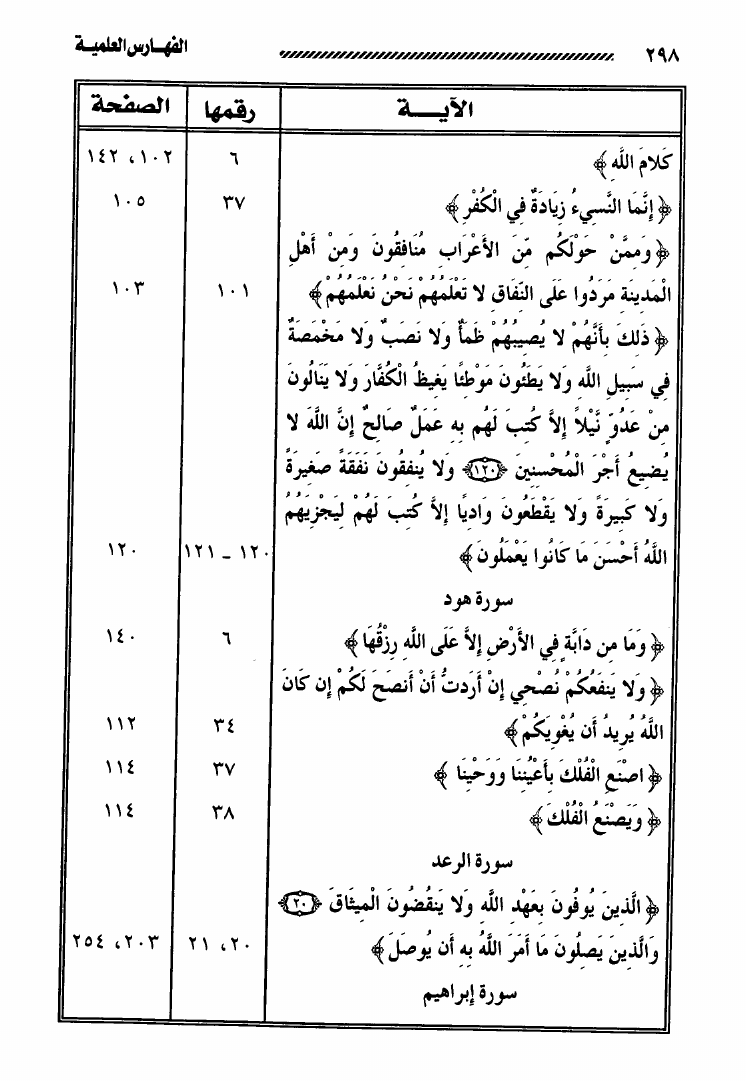 ٢٩٨ الفهارس العلمية
الآيــة رقمها الصفحة
كَلامَ اللَّهِ ﴾ ٦ ١٠٢، ١٤٢
﴿ إِنَّمَا النَّسِيءُ زِيَادَةٌ فِي الْكُفْرِ ﴾ ٣٧ ١٠٥
﴿ وَمِمَّنْ حَوْلَكُم مِّنَ الأَعْرَابِ مُنَافِقُونَ وَمِنْ أَهْلِ
الْمَدِينَةِ مَرَدُوا عَلَى النِّفَاقِ لا تَعْلَمُهُمْ نَحْنُ نَعْلَمُهُمْ ﴾ ١٠١ ١٠٣
﴿ ذَلِكَ بِأَنَّهُمْ لا يُصِيبُهُمْ ظَمَأٌ وَلا نَصَبٌ وَلا مَخْمَصَةٌ
فِي سَبِيلِ اللَّهِ وَلا يَطَئُونَ مَوْطِئًا يَغِيظُ الْكُفَّارَ وَلا يَنَالُونَ
مِنْ عَدُوٍّ نَّيْلاً إِلاَّ كُتِبَ لَهُم بِهِ عَمَلٌ صَالِحٌ إِنَّ اللَّهَ لا
يُضِيعُ أَجْرَ الْمُحْسِنِينَ ﴿١٢٠﴾ وَلا يُنفِقُونَ نَفَقَةً صَغِيرَةً
وَلا كَبِيرَةً وَلا يَقْطَعُونَ وَادِيًا إِلاَّ كُتِبَ لَهُمْ لِيَجْزِيَهُمُ
اللَّهُ أَحْسَنَ مَا كَانُوا يَعْمَلُونَ ﴾ ١٢٠ ـ ١٢١ ١٢٠
سورة هود
﴿ وَمَا مِن دَابَّةٍ فِي الأَرْضِ إِلاَّ عَلَى اللَّهِ رِزْقُهَا ﴾ ٦ ١٤٠
﴿ وَلا يَنفَعُكُمْ نُصْحِي إِنْ أَرَدتُّ أَنْ أَنصَحَ لَكُمْ إِن كَانَ
اللَّهُ يُرِيدُ أَن يُغْوِيَكُمْ ﴾ ٣٤ ١١٢
﴿ اصْنَعِ الْفُلْكَ بِأَعْيُنِنَا وَوَحْيِنَا ﴾ ٣٧ ١١٤
﴿ وَيَصْنَعُ الْفُلْكَ ﴾ ٣٨ ١١٤
سورة الرعد
﴿ الَّذِينَ يُوفُونَ بِعَهْدِ اللَّهِ وَلا يَنقُضُونَ الْمِيثَاقَ ﴿٢٠﴾
وَالَّذِينَ يَصِلُونَ مَا أَمَرَ اللَّهُ بِهِ أَن يُوصَلَ ﴾ ٢٠، ٢١ ٢٠٣، ٢٥٤
سورة إبراهيم